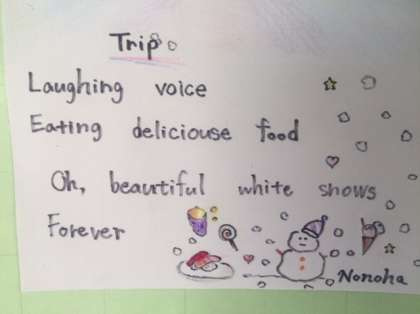 Trip
Laughing voice
Eating deliciouse food
Oh, beautiful white snows
Forever
Nonoha